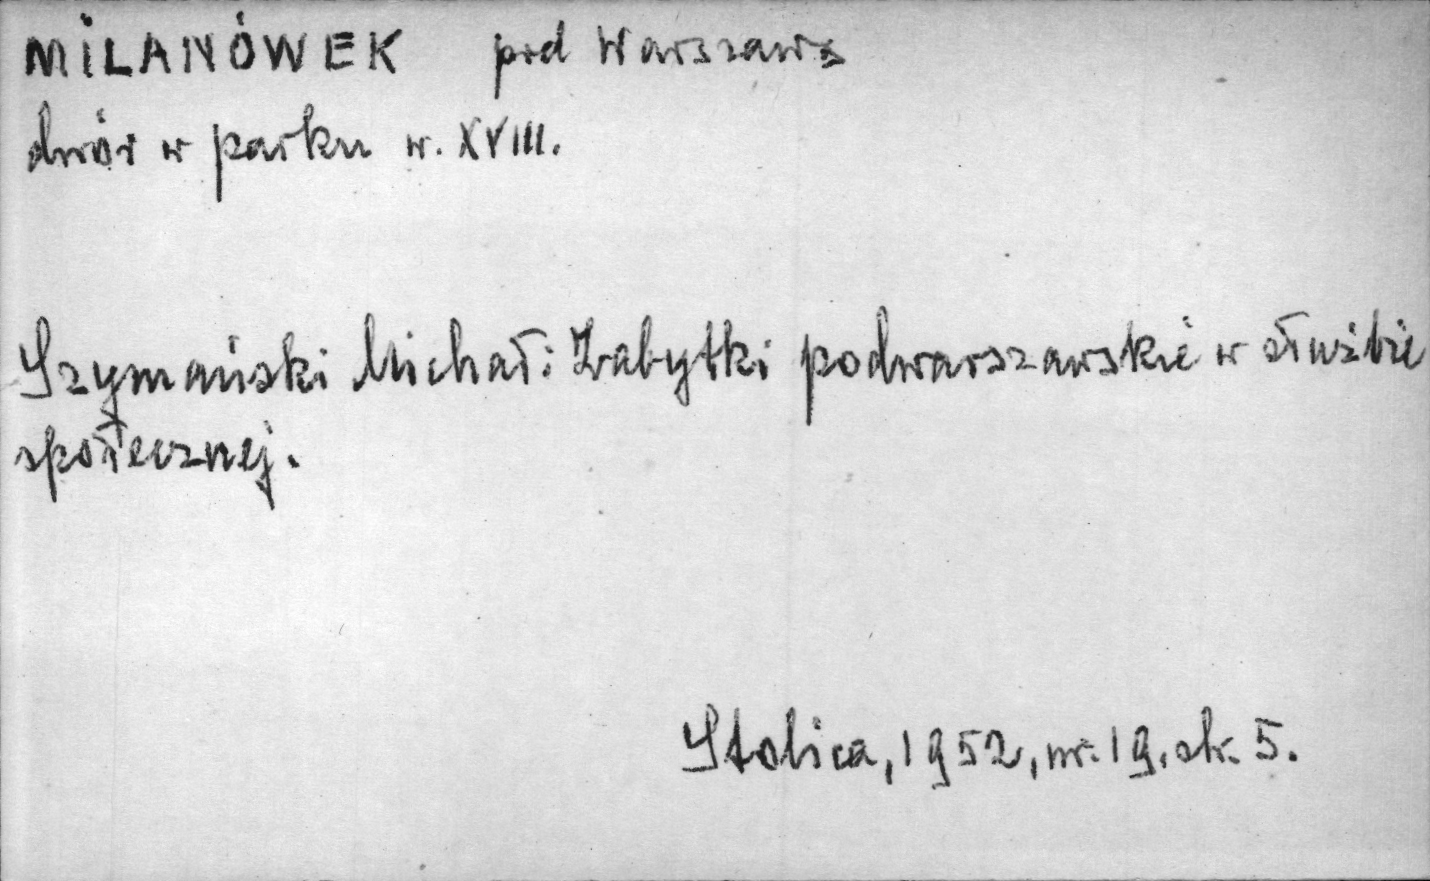 MILANÓWEK pod Warszawą
dwór w parku w. XVIII.
Szymański Michał: Zabytki podwarszawskie w służbie
społecznej.
Stolica, 1952, nr. 19, str. 5.